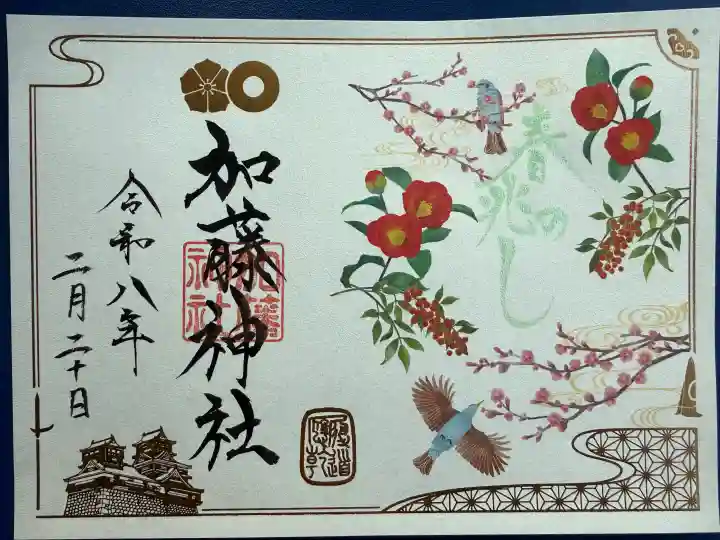 春兆し
加藤神社
加藤神社
令和八年
二月二十日